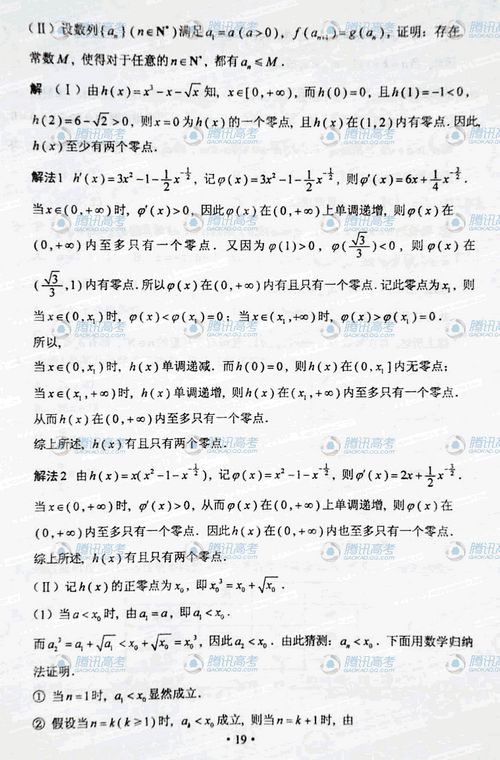 (Ⅱ) 设数列{aₙ}(n∈N*)满足a₁=a(a>0), f(aₙ₊₁)=g(aₙ), 证明: 存在
常数M, 使得对于任意的n∈N*, 都有aₙ≤M.
解 (Ⅰ) 由h(x)=x³-x-√x知, x∈[0,+∞), 而h(0)=0, 且h(1)=-1<0,
h(2)=6-√2>0, 则x=0为h(x)的一个零点, 且h(x)在(1,2)内有零点. 因此,
h(x)至少有两个零点.
解法1 h′(x)=3x²-1-\frac{1}{2}x^{-\frac{1}{2}}, 记φ(x)=3x²-1-\frac{1}{2}x^{-\frac{1}{2}}, 则φ′(x)=6x+\frac{1}{4}x^{-\frac{3}{2}}.
当x∈(0,+∞)时, φ′(x)>0, 因此φ(x)在(0,+∞)上单调递增, 则φ(x)在
(0,+∞)内至多只有一个零点. 又因为φ(1)>0, φ(\frac{√3}{3})<0, 则φ(x)在
(\frac{√3}{3},1)内有零点. 所以φ(x)在(0,+∞)内有且只有一个零点. 记此零点为x₁, 则
当x∈(0,x₁)时, φ(x)<φ(x₁)=0; 当x∈(x₁,+∞)时, φ(x)>φ(x₁)=0.
所以,
当x∈(0,x₁)时, h(x)单调递减. 而h(0)=0, 则h(x)在(0,x₁]内无零点;
当x∈(x₁,+∞)时, h(x)单调递增, 则h(x)在(x₁,+∞)内至多只有一个零点.
从而h(x)在(0,+∞)内至多只有一个零点.
综上所述, h(x)有且只有两个零点.
解法2 由h(x)=x(x²-1-x^{-\frac{1}{2}}), 记φ(x)=x²-1-x^{-\frac{1}{2}}, 则φ′(x)=2x+\frac{1}{2}x^{-\frac{3}{2}}.
当x∈(0,+∞)时, φ′(x)>0, 从而φ(x)在(0,+∞)上单调递增, 则φ(x)在
(0,+∞)内至多只有一个零点. 因此h(x)在(0,+∞)内也至多只有一个零点.
综上所述, h(x)有且只有两个零点.
(Ⅱ) 记h(x)的正零点为x₀, 即x₀³=x₀+√x₀.
(1) 当a<x₀时, 由a₁=a, 即a₁<x₀.
而a₂³=a₁+√a₁<x₀+√x₀=x₀³, 因此a₂<x₀. 由此猜测: aₙ<x₀. 下面用数学归纳
法证明.
① 当n=1时, a₁<x₀显然成立.
② 假设当n=k(k≥1)时, aₖ<x₀成立, 则当n=k+1时, 由
·19·